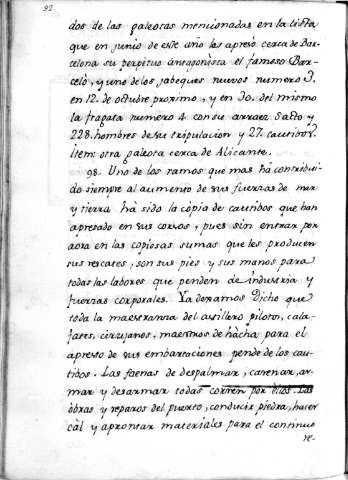 92.
dos de las galeotas mencionadas en la lista
que en junio de este año las apresò cerca de Bar-
celona su perpetuo antagonista el famoso Bar-
celò, y uno de los jabeques nuevos numero 3.
en 12. de octubre proximo, y en 30. del mismo
la fragata numero 4 con su arraez Salto y
228. hombres de su tripulacion y 27. cautibos.
Item: otra galeota cerca de Alicante.
98. Uno de los ramos que mas hà contribui-
do siempre al aumento de sus fuerzas de mar
y tierra hà sido la còpia de cautibos que han
apresado en sus corsos, pues sin entrar por
aora en las copiosas sumas que les producen
sus rescates, son sus pies y sus manos para
todas las labores que penden de industria y
fuerzas corporales. Ya dexamos dicho que
toda la maestranza del astillero pilotos, cala-
fates, cirujanos, maestros de hàcha para el
apresto de sus embarcaciones pende de los cau-
tibos. Las faenas de despalmar, carenar, ar-
mar y desarmar todas corren por ellos. Las
òbras y reparos del puerto, conducir piedra, hacer
càl y aprontar materiales para el continuo
re-